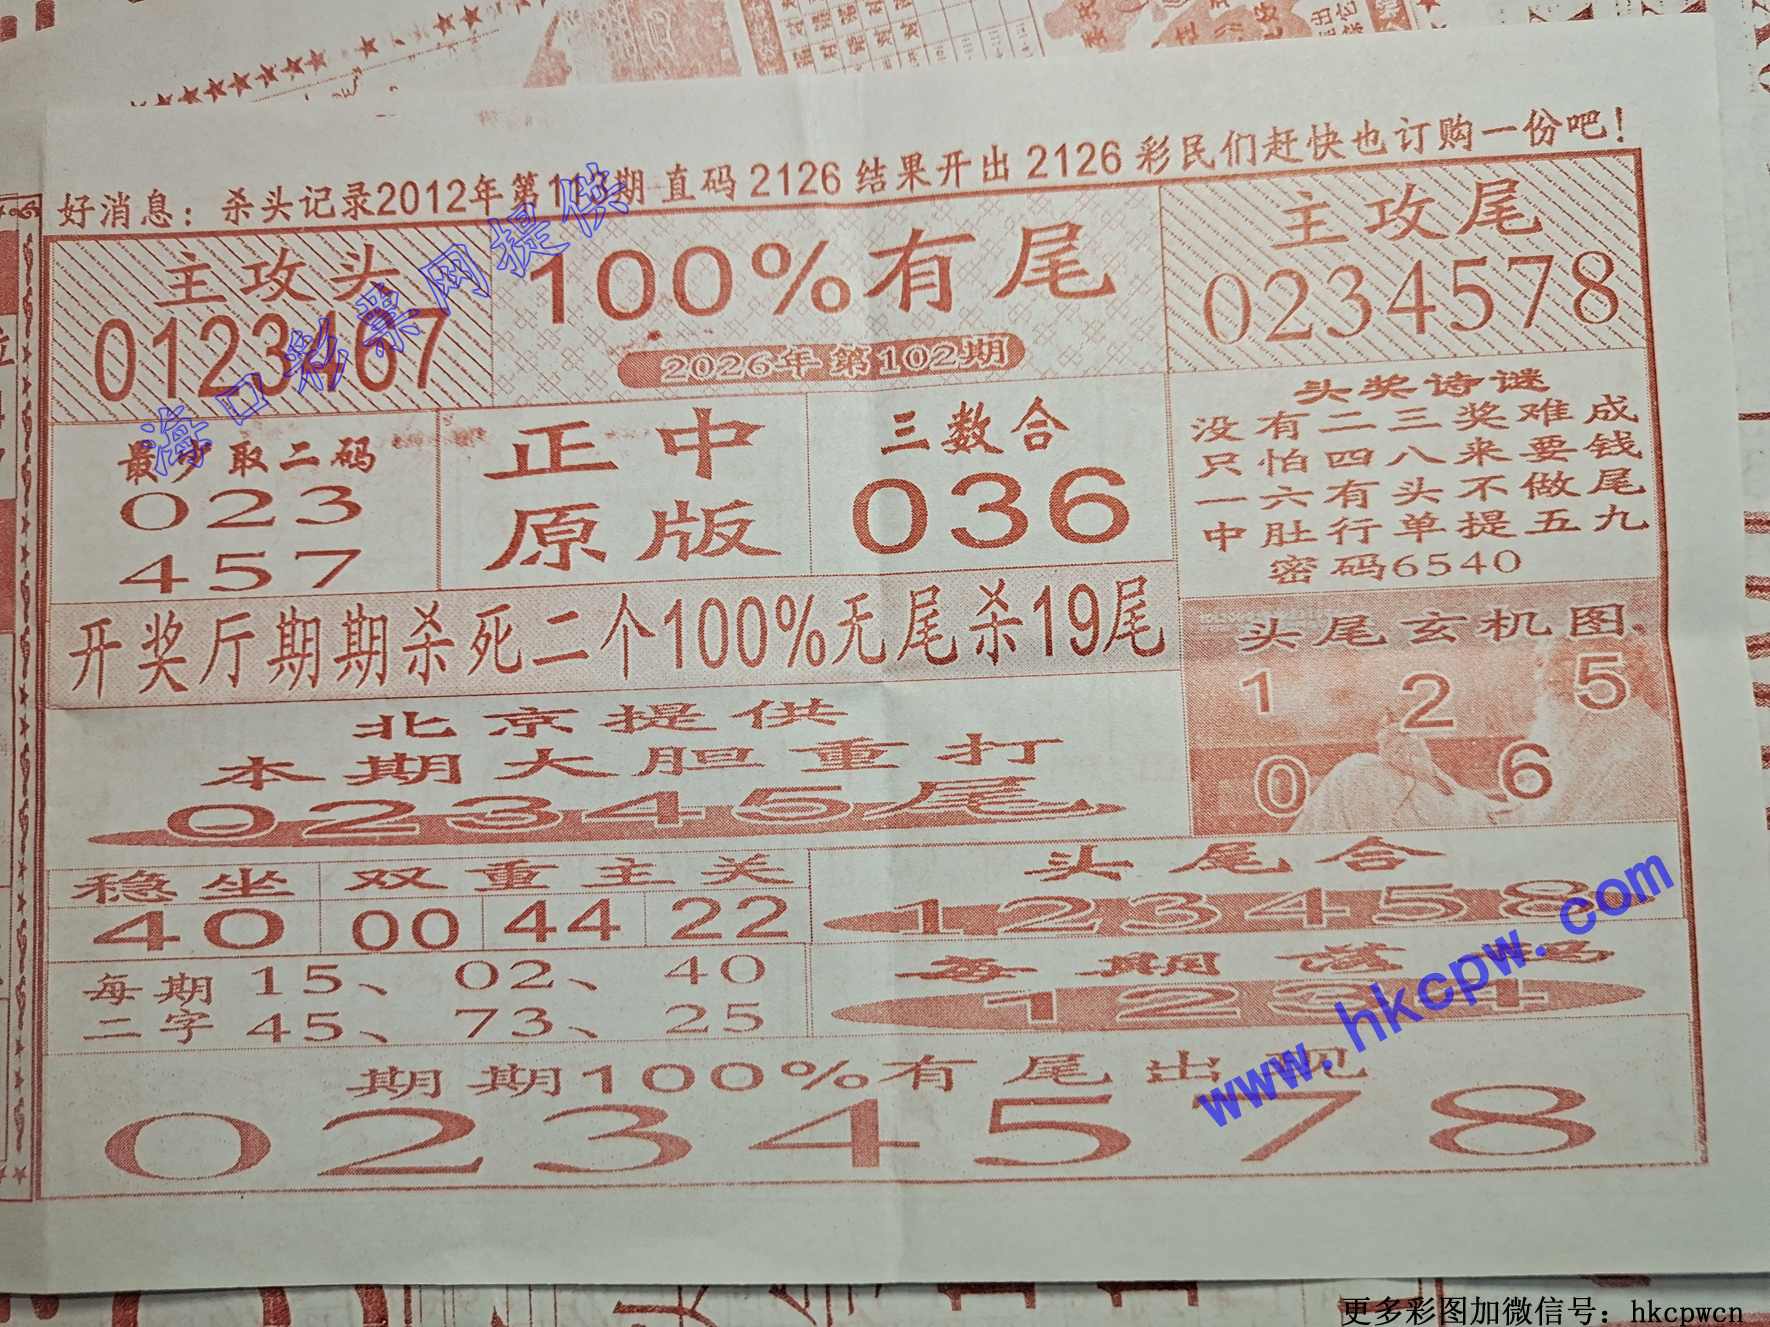 好消息：杀头记录2012年第113期 直码2126结果开出2126彩民们赶快也订购一份吧！
主攻头
0123467
100%有尾
2026年第102期
主攻尾
0234578
最少取二码
023
457
正中
原版
三数合
036
头奖诗谜
没有二三奖难成
只怕四八来要钱
一六有头不做尾
中肚行单提五九
密码6540
开奖厅期期杀死二个100%无尾杀19尾
头尾玄机图
1 2 5
0 6
北京提供
本期大胆重打
02345尾
稳坐
40
双重主关
00 44 22
头尾合
123458
每期
二字
15、 02、 40
45、 73、 25
每期落码
1234
期期100%有尾出现
0234578
海口彩票网提供
www.hkcpw.com
更多彩图加微信号：hkcpwcn